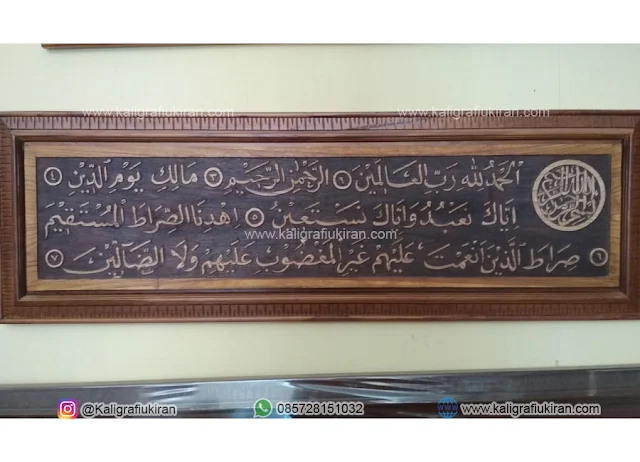 www.kaligrafiukiran.com www.kaligrafiukiran.com
بسم الله الرحمن الرحيم
الحمد لله رب العالمين الرحمن الرحيم ٣ مالك يوم الدين ٤
اياك نعبد واياك نستعين ٥ اهدنا الصراط المستقيم
www.kaligrafiukiran.com
٦ صراط الذين انعمت عليهم غير المغضوب عليهم ولا الضالين ٧
@Kaligrafiukiran 085728151032 www.kaligrafiukiran.com